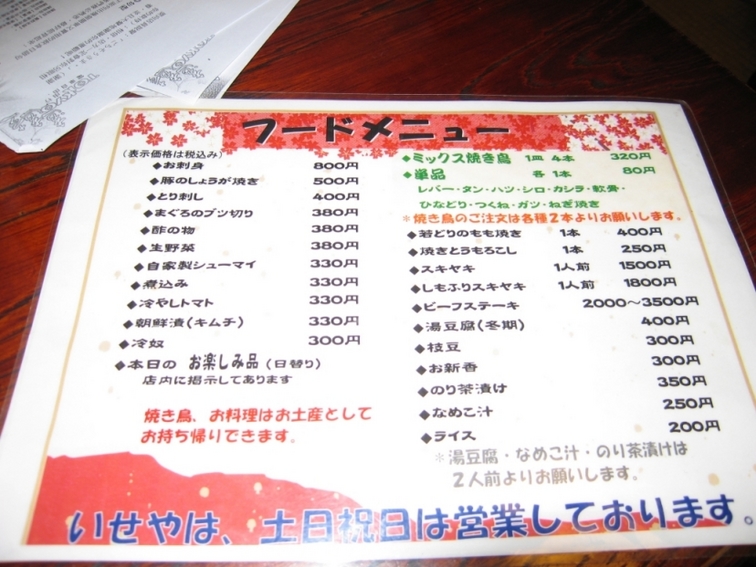 フードメニュー
(表示価格は税込み)
◆お刺身 800円
◆豚のしょうが焼き 500円
◆とり刺し 400円
◆まぐろのブツ切り 380円
◆酢の物 380円
◆生野菜 380円
◆自家製シューマイ 330円
◆煮込み 330円
◆冷やしトマト 330円
◆朝鮮漬(キムチ) 330円
◆冷奴 300円
◆本日の お楽しみ品(日替り)
店内に掲示してあります
焼き鳥、お料理はお土産として
お持ち帰りできます。
◆ミックス焼き鳥 1皿 4本 320円
◆単品 各 1本 80円
レバー・タン・ハツ・シロ・カシラ・軟骨・
ひなどり・つくね・ガツ・ねぎ焼き
*焼き鳥のご注文は各種2本よりお願いします。
◆若どりのもも焼き 1本 400円
◆焼きとうもろこし 1本 250円
◆スキヤキ 1人前 1500円
◆しもふりスキヤキ 1人前 1800円
◆ビーフステーキ 2000〜3500円
◆湯豆腐(冬期) 400円
◆枝豆 300円
◆お新香 300円
◆のり茶漬け 350円
◆なめこ汁 250円
◆ライス 200円
*湯豆腐・なめこ汁・のり茶漬けは
2人前よりお願いします。
いせやは、土日祝日は営業しております。